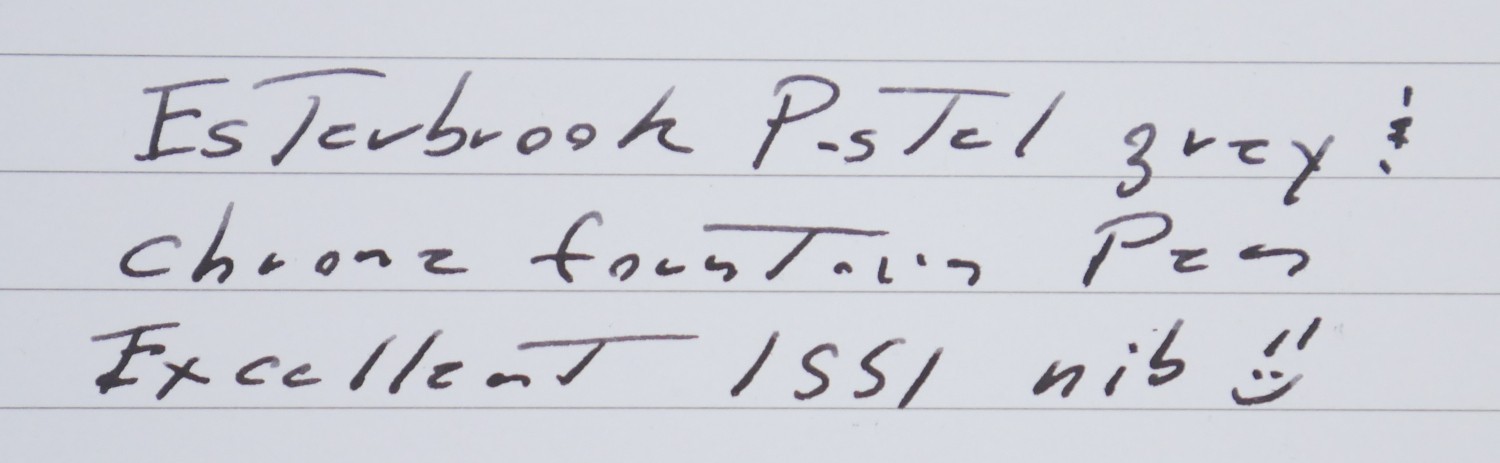 Esterbrook Pastel grey &
chrome fountain Pen
Excellent 1551 nib !!